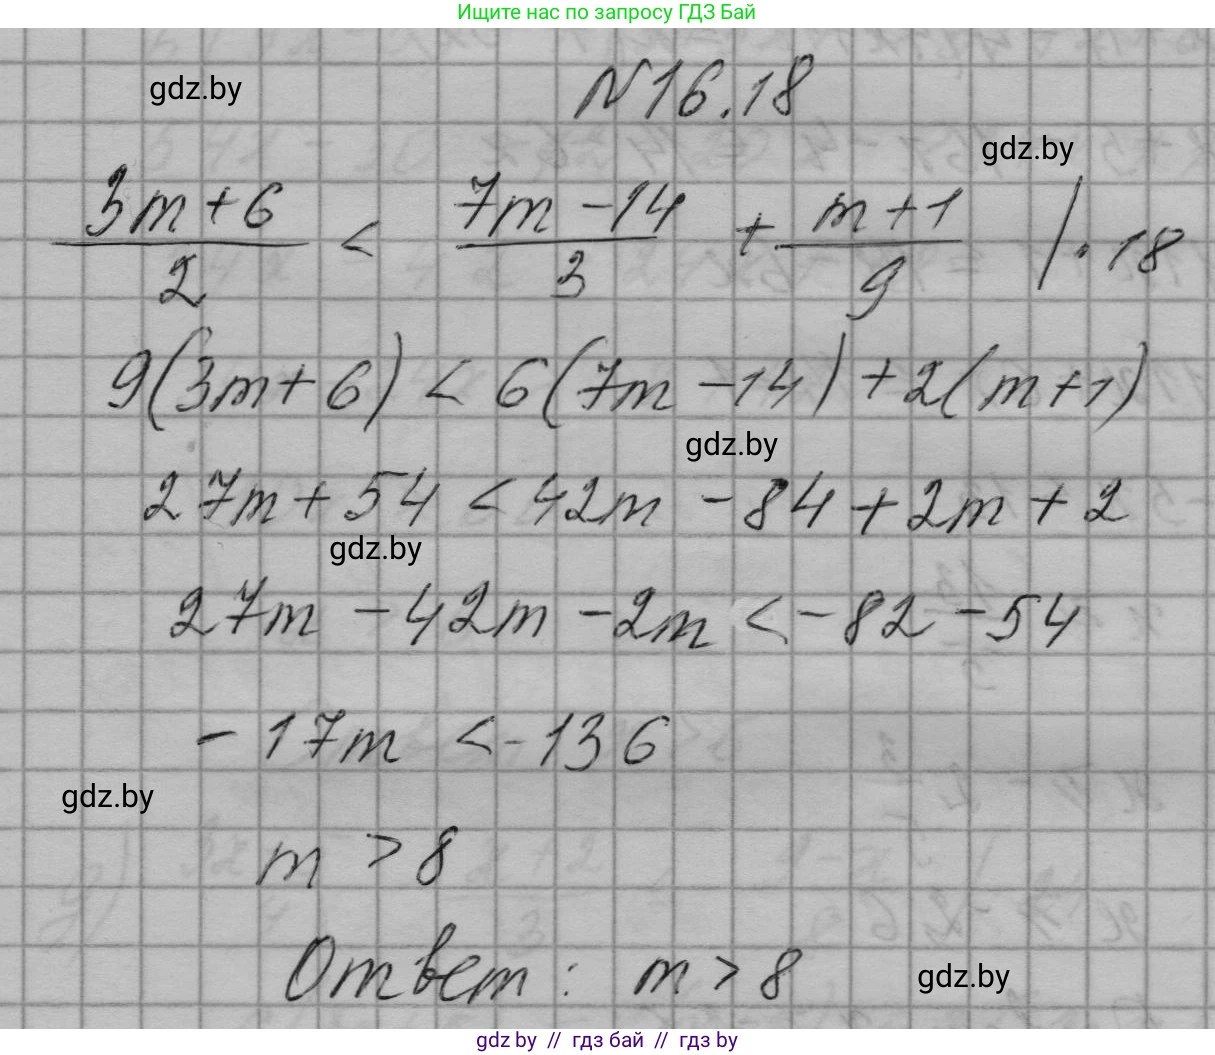 Ищите нас по запросу ГДЗ Бай
gdz.by
N16.18
gdz.by
(3m+6)/2 < (7m-14)/3 + (m+1)/9 |·18
9(3m+6) < 6(7m-14)+2(m+1)
gdz.by
27m+54 < 42m-84+2m+2
gdz.by
27m-42m-2m < -82-54
-17m < -136
gdz.by
m > 8
Ответ: m > 8
gdz.by
gdz.by // гдз бай // гдз by